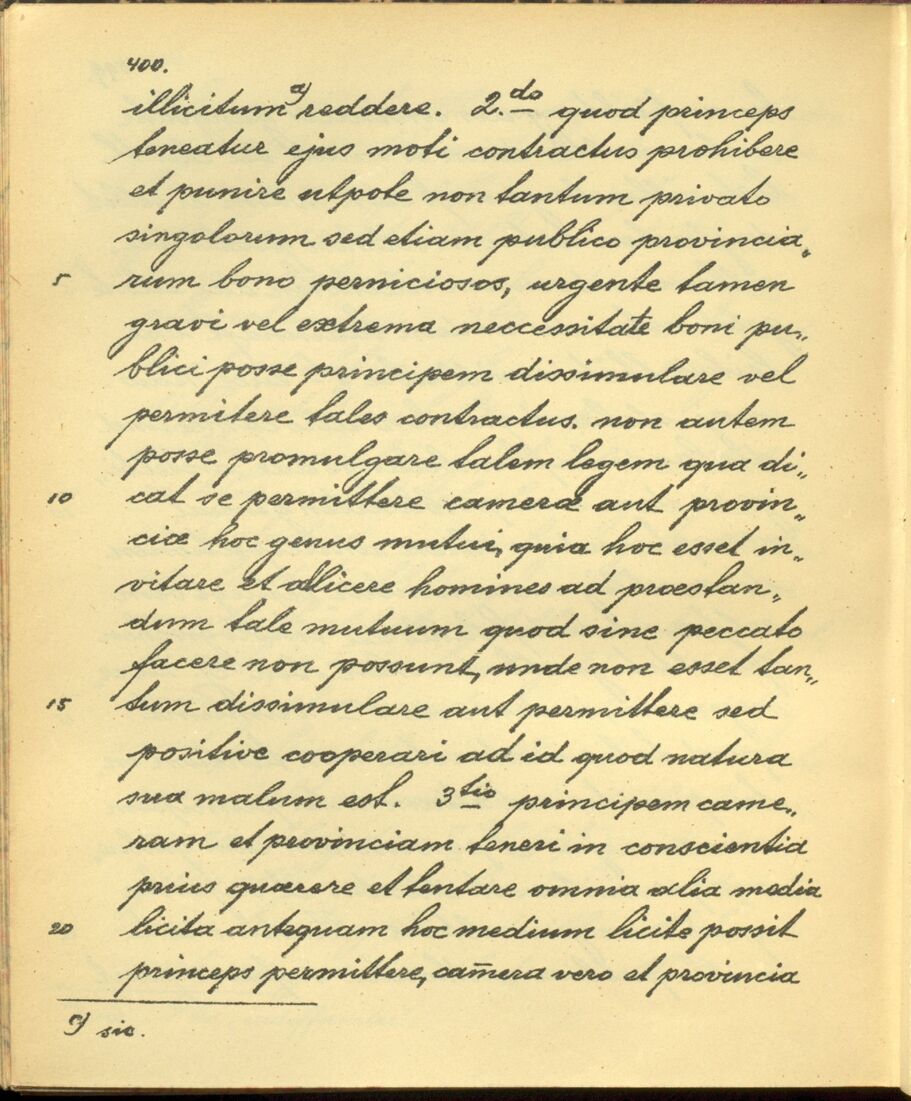 400.
illicitum a) reddere. 2.do quod princeps
teneatur ejus modi contractus prohibere
et punire utpote non tantum privato
singolorum sed etiam publico provincia„
5 rum bono perniciosos, urgente tamen
gravi vel extrema neccessitate boni pu„
blici posse principem dissimulare vel
permitere tales contractus. non autem
posse promulgare talem legem qua di„
10 cat se permittere camerae aut provin„
ciæ hoc genus mutui, quia hoc esset in„
vitare et allicere homines ad proestan„
dum tale mutuum quod sine peccato
facere non possunt, unde non esset tan„
15 tum dissimulare aut permittere sed
positive cooperari ad id quod natura
sua malum est. 3tio principem came„
ram et provinciam teneri in conscientia
prius quærere et tentare omnia alia media
20 licita antequam hoc medium licite possit
princeps permittere, cam̄era vero et provincia
a) sic.